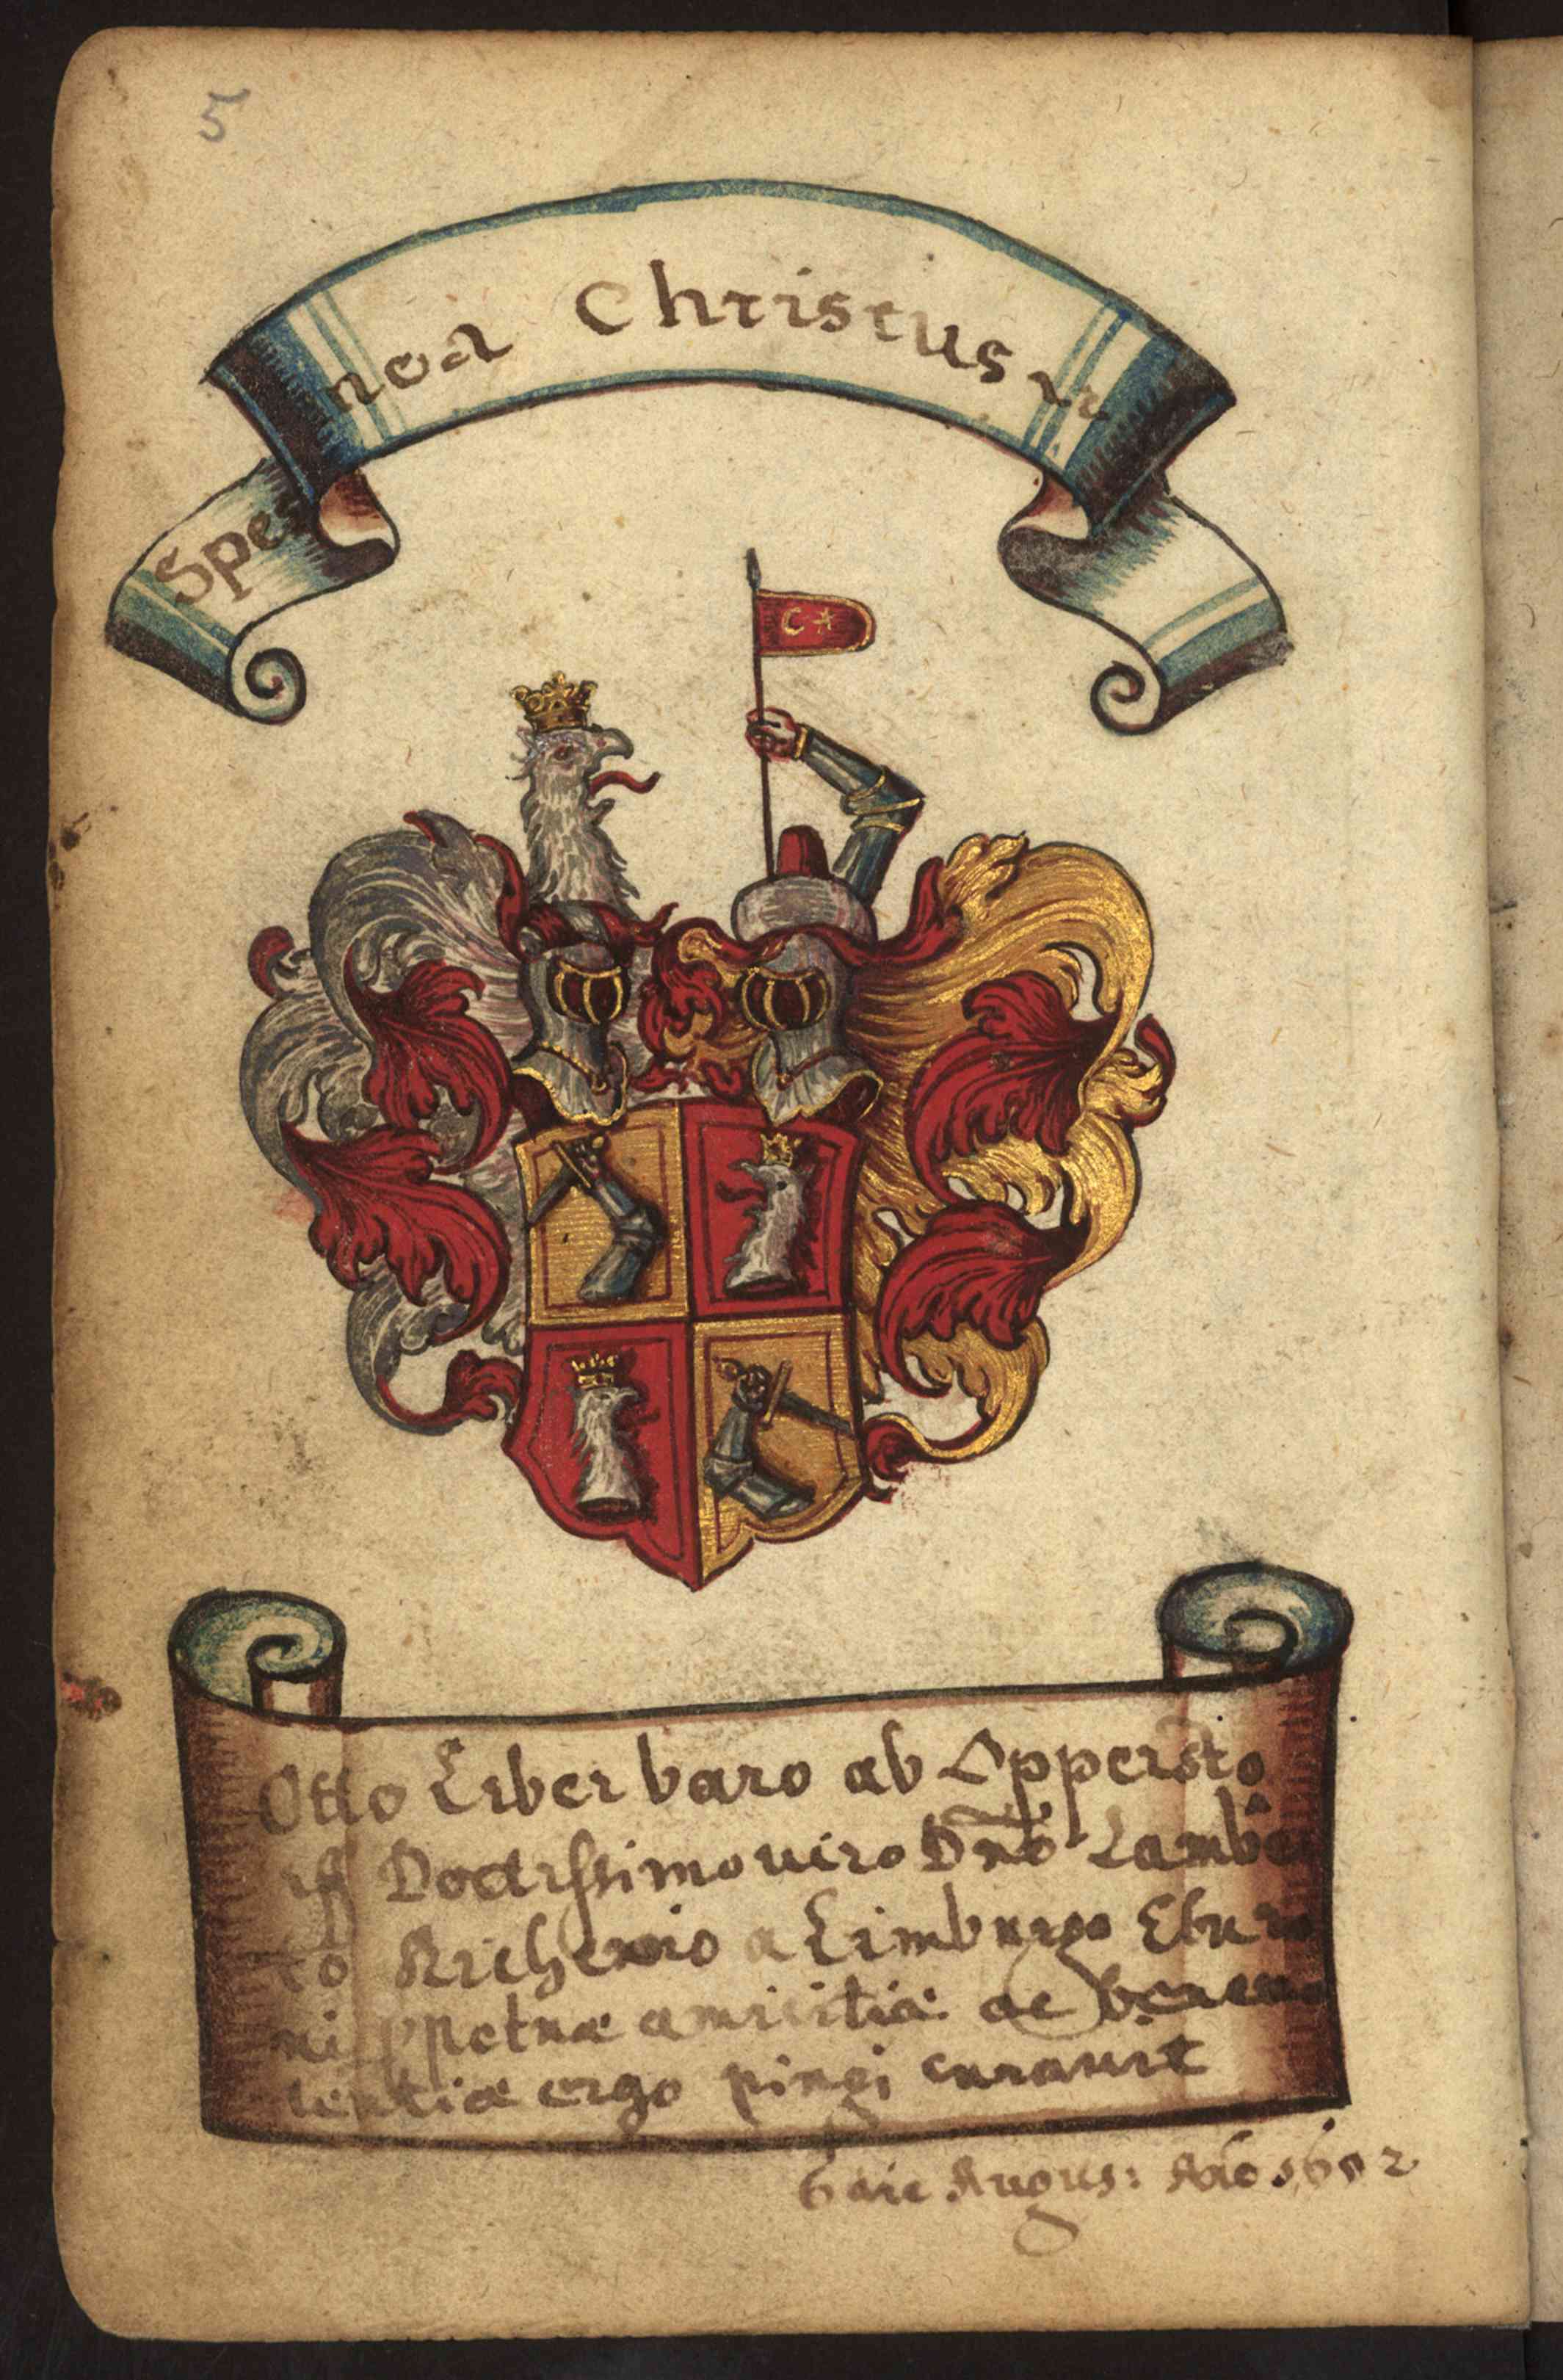 5
Spes
noa Christus
Otto Liber baro ab Oppersto
rff Doctissimo uiro Dno Lamber
to Richerio a Limburgo Eburo
ni ppetuæ amicitiæ ac beneuo
lentiæ ergo pingi curauit
6 die Augus: Año 1602